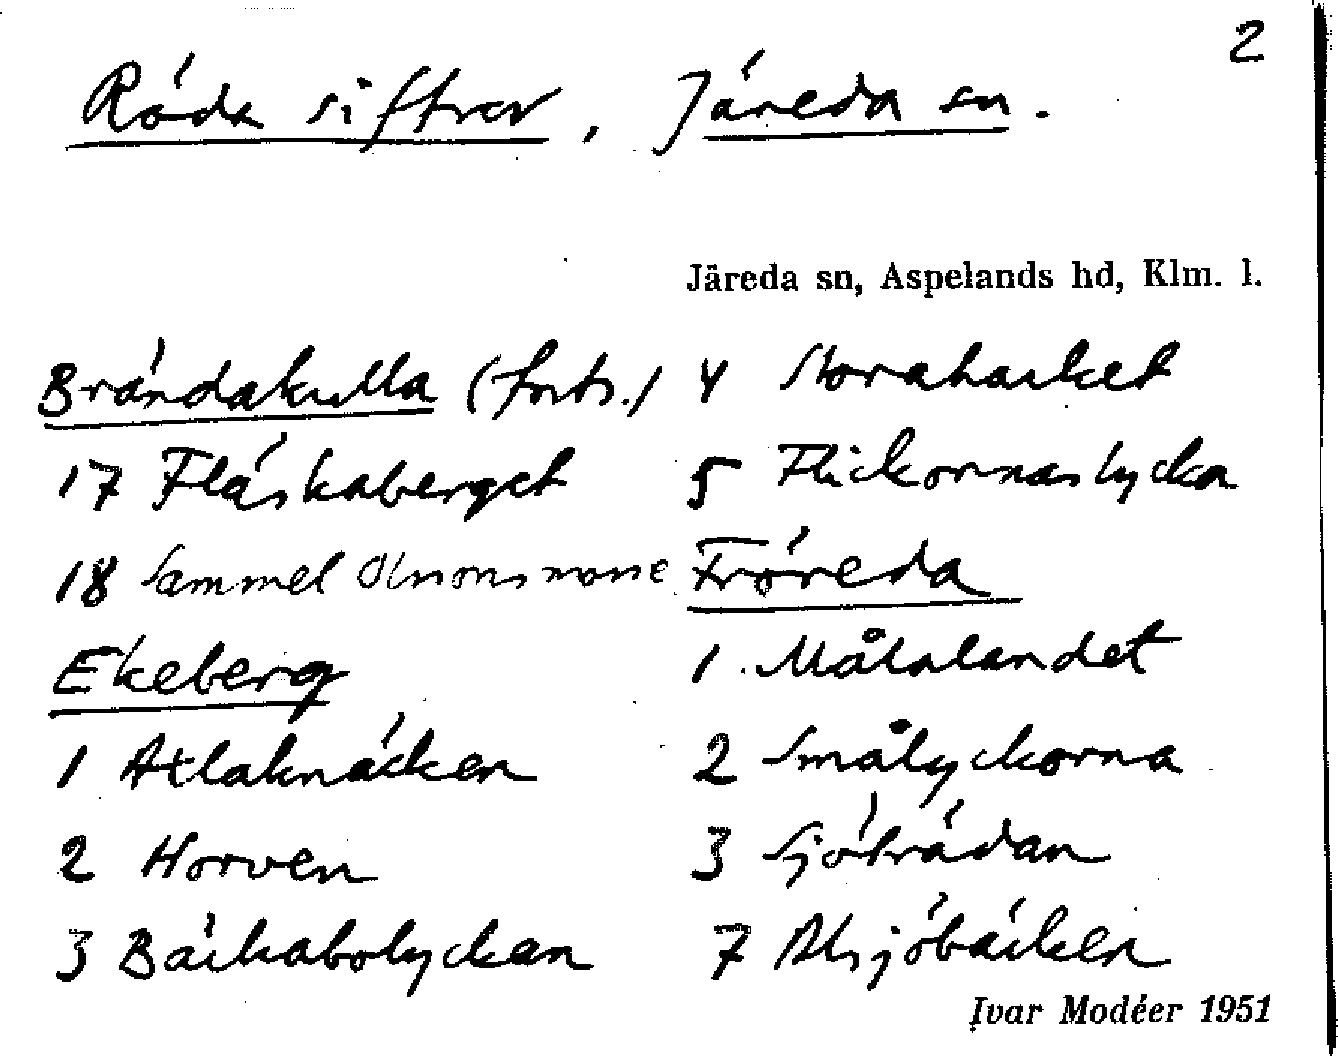 2
Röda siffror, Järeda sn.
Järeda sn, Aspelands hd, Klm. l.
Brändakulla (forts.)
17 Fläskaberget
18 Sammel Olssons mosse
Ekeberg
1 Axlaknäcken
2 Horven
3 Bäckabolyckan
4 Storahacket
5 Flickornas lycka
Fröreda
1. Målalandet
2 Smålyckorna
3 Sjöträdan
7 Alsjöbäcken
Ivar Modéer 1951